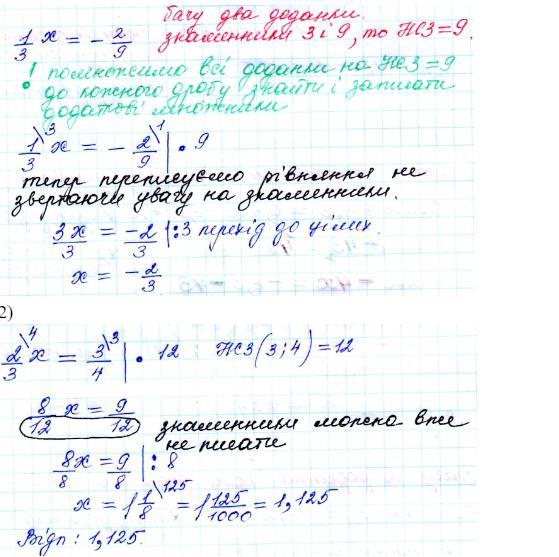 бачу два доданки.
1/3 x = - 2/9 знаменники 3 і 9, то НСЗ = 9.
! помножимо всі доданки на НСЗ = 9
до кожного дробу знайти і записати
додаткові множники
1\3/3 x = - 2\1/9 | • 9
тепер переписуємо рівняння не
звертаючи увагу на знаменники.
3x/3 = -2/3 | :3 перехід до цілих.
x = - 2/3
2)
2\4/3 x = 3\3/4 | • 12 НСЗ(3; 4) = 12
8/12 x = 9/12 знаменники можна вже
не писати
8x/8 = 9/8 | : 8
x = 1 1\125/8 = 1 125/1000 = 1,125
Відп: 1,125.